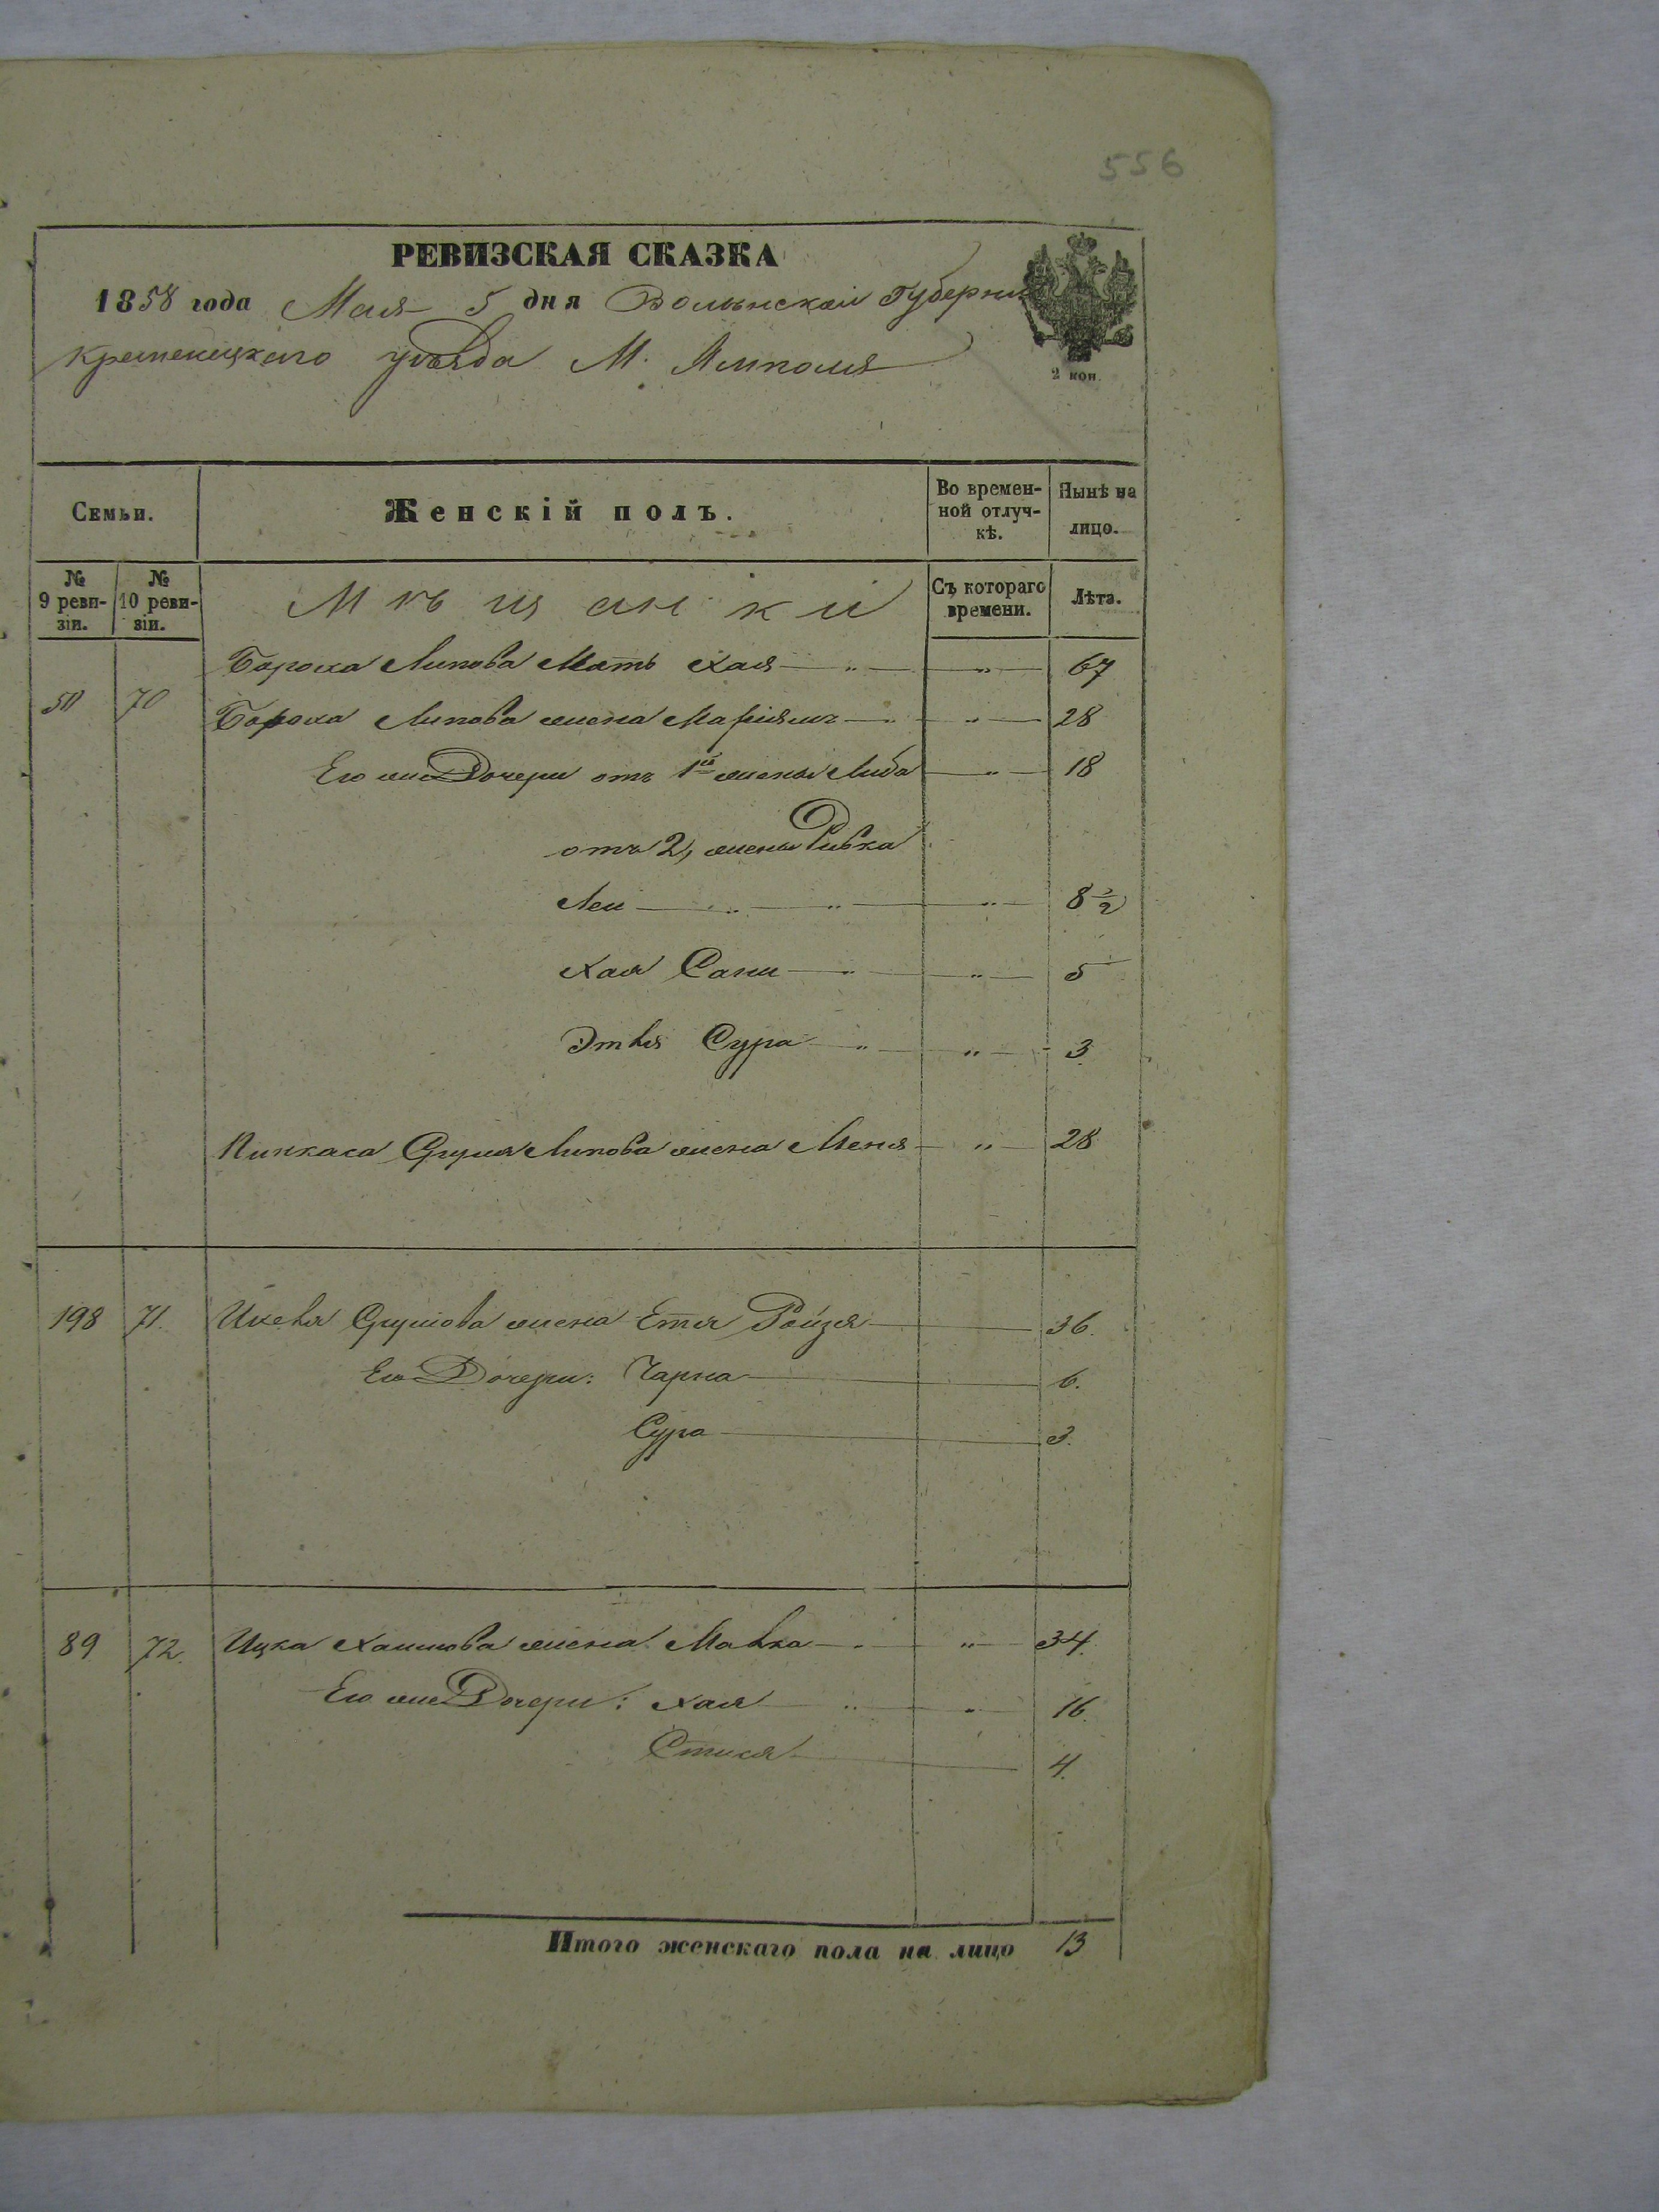 556
РЕВИЗСКАЯ СКАЗКА
1858 года Мая 5 дня Волынской Губерніи
Кременецкаго уѣзда М. Ямполя
2 коп.
Семьи.
Женскій полъ.
Во времен-
ной отлуч-
кѣ.
Нынѣ на
лицо.
№
9 реви-
зіи.
№
10 реви-
зіи.
Мѣщанки
Съ котораго
времени.
Лѣта.
Бороха Липова Мать Хая — „ — „ — 67
70 Бороха Липова жена Маріямъ — „ — „ — 28
Его же Дочери отъ 1й жены Либа — „ — 18
отъ 2, жены Ривка
Леи — „ — „ — „ — 8 1/2
Хая — „ — „ — 5
Сура — „ — „ — 3
Пинкаса Сруля Липова жена Меня — „ — 28
198 71. Срулова жена Етя Ройзя — 36.
Его Дочери: Чарна — 6.
Сура — 3.
89 72. Ицка Хаимова жена Малка — „ — „ — 34.
Его же Дочери: Хая — „ — „ — 16.
4.
Итого женскаго пола на лицо 13